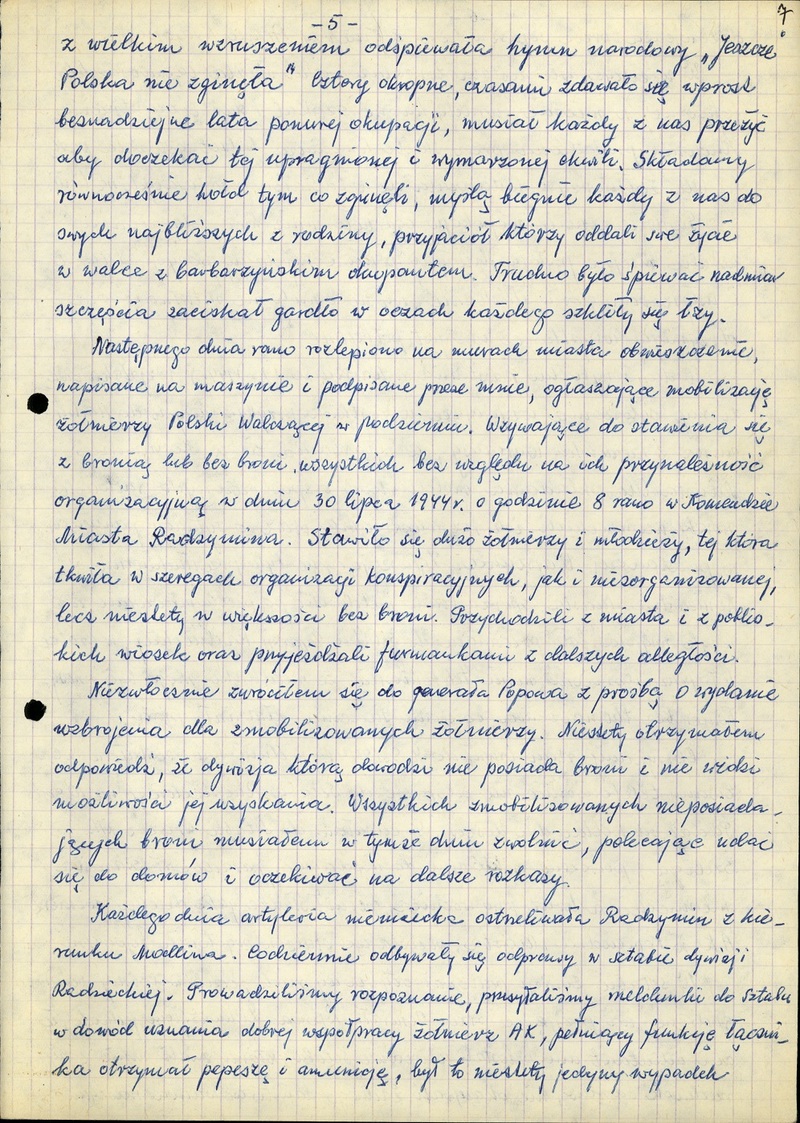 -5-
7
z wielkim wzruszeniem odśpiewała hymn narodowy „Jeszcze
Polska nie zginęła" Cztery okropne, czasami zdawało się wprost
beznadziejne lata ponurej okupacji, musiał każdy z nas przeżyć
aby doczekać tej upragnionej i wymarzonej chwili. Składamy
równocześnie hołd tym co zginęli, myślą biegnie każdy z nas do
swych najbliższych z rodziny, przyjaciół którzy oddali swe życie
w walce z barbarzyńskim okupantem. Trudno było śpiewać nadmiar
szczęścia zaciskał gardło w oczach każdego szkliły się łzy.
Następnego dnia rano rozlepiono na murach miasta obwieszczenie,
napisane na maszynie i podpisane przeze mnie, ogłaszające mobilizację
żołnierzy Polski Walczącej w podziemiu. Wzywające do stawienia się
z bronią lub bez broni, wszystkich bez względu na ich przynależność
organizacyjną w dniu 30 lipca 1944 r. o godzinie 8 rano w Komendzie
Miasta Radzymina. Stawiło się dużo żołnierzy i młodzieży, tej która
tkwiła w szeregach organizacji konspiracyjnych, jak i niezorganizowanej,
lecz niestety w większości bez broni. Przychodzili z miasta i z poblis-
kich wiosek oraz przyjeżdżali furmankami z dalszych odległości.
Niezwłocznie zwróciłem się do generała Popowa z prośbą o wydanie
uzbrojenia dla zmobilizowanych żołnierzy. Niestety otrzymałem
odpowiedź, że dywizja którą dowodzi nie posiada broni i nie widzi
możliwości jej uzyskania. Wszystkich zmobilizowanych nieposiada-
jących broni musiałem w tymże dniu zwolnić, polecając udać
się do domów i oczekiwać na dalsze rozkazy.
Każdego dnia artyleria niemiecka ostrzeliwała Radzymin z kie-
runku Modlina. Codziennie odbywały się odprawy w sztabie dywizji
Radzieckiej. Prowadziliśmy rozpoznanie, przesyłaliśmy meldunki do sztabu
w dowód uznania dobrej współpracy żołnierz AK, pełniący funkcję łączni-
ka otrzymał pepeszę i amunicję, był to niestety jedyny wypadek